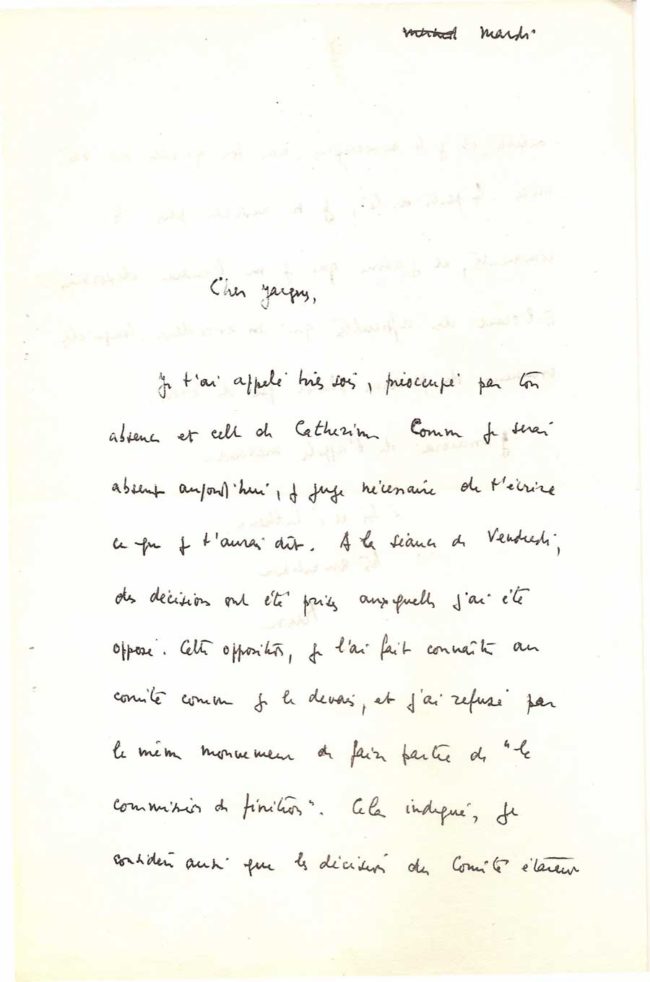 mardi
Cher Jacques,
Je t'ai appelé hier soir, préoccupé par ton
absence et celle de Catherine Comme je serai
absent aujourd'hui, je juge nécessaire de t'écrire
ce que je t'aurai dit. A la séance de Vendredi,
des décisions ont été prises auxquelles j'ai été
opposé. Cette opposition, je l'ai fait connaître au
comité comme je le devais, et j'ai refusé par
le même mouvement de faire partie de "la
commission de finition". Cela indiqué, je
considère aussi que les décisions du Comité étaient